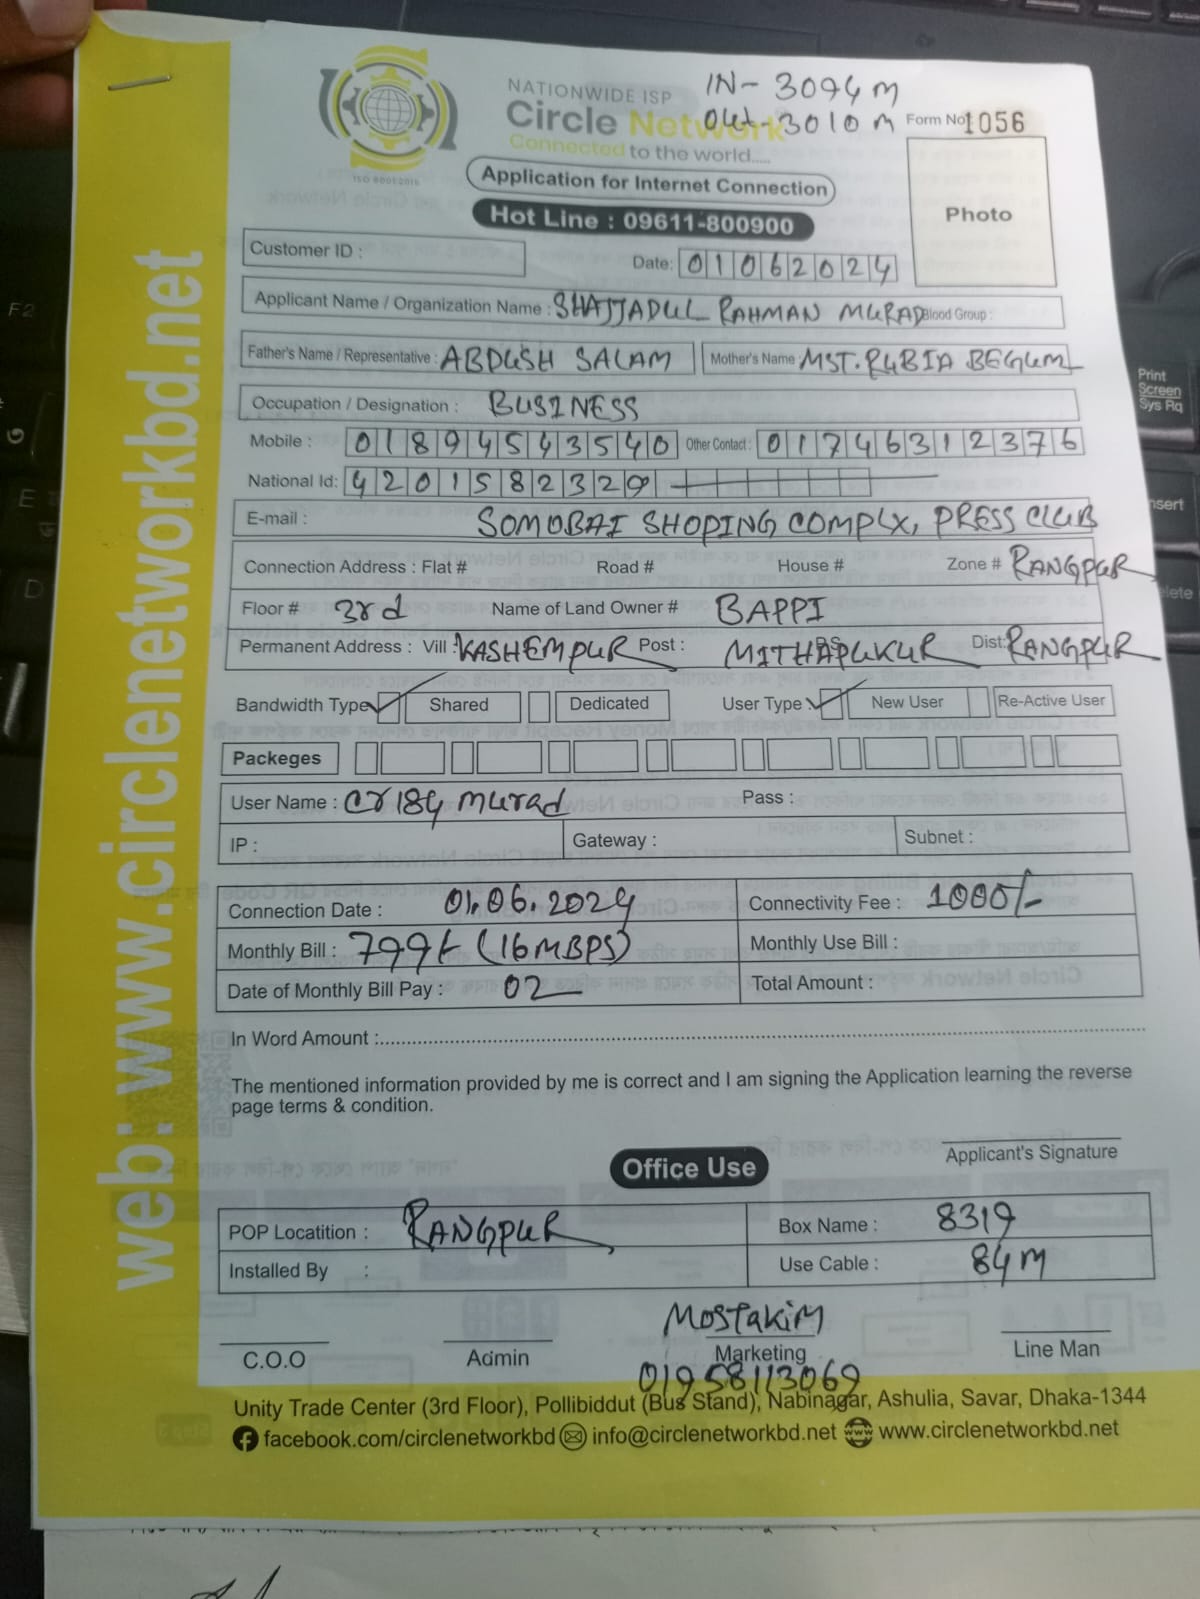 NATIONWIDE ISP
Circle Network
Connected to the world.....
IN- 3094 M
Out- 3010 M
Form No: 1056
ISO 9001:2015
Application for Internet Connection
Hot Line : 09611-800900
Photo
Customer ID :
Date: 01062024
Applicant Name / Organization Name : SHAJJADUL RAHMAN MURAD Blood Group :
Father's Name / Representative : ABDUSH SALAM Mother's Name : MST. RUBIA BEGUM
Occupation / Designation : BUSINESS
Mobile : 01894543540 Other Contact : 01746312376
National Id: 4201582329
E-mail : SOMOBAI SHOPING COMPLX, PRESS CLUB
Connection Address : Flat # Road # House # Zone # RANGPUR
Floor # 3rd Name of Land Owner # BAPPI
Permanent Address : Vill : KASHEMPUR Post : MITHAPUKUR P.S Dist: RANGPUR
Bandwidth Type Shared Dedicated User Type : New User Re-Active User
Packeges
User Name : cr184 murad Pass :
IP : Gateway : Subnet :
Connection Date : 01.06.2024 Connectivity Fee : 1000/-
Monthly Bill : 799/- (16MBPS) Monthly Use Bill :
Date of Monthly Bill Pay : 02 Total Amount :
In Word Amount :
The mentioned information provided by me is correct and I am signing the Application learning the reverse
page terms & condition.
Applicant's Signature
Office Use
POP Locatition : RANGPUR Box Name : 8319
Installed By : Use Cable : 84M
MOSTAKIM
C.O.O Admin Marketing Line Man
01958113069
Unity Trade Center (3rd Floor), Pollibiddut (Bus Stand), Nabinagar, Ashulia, Savar, Dhaka-1344
facebook.com/circlenetworkbd info@circlenetworkbd.net www www.circlenetworkbd.net
web: www.circlenetworkbd.net
F2
E
D
Print
Screen
Sys Rq